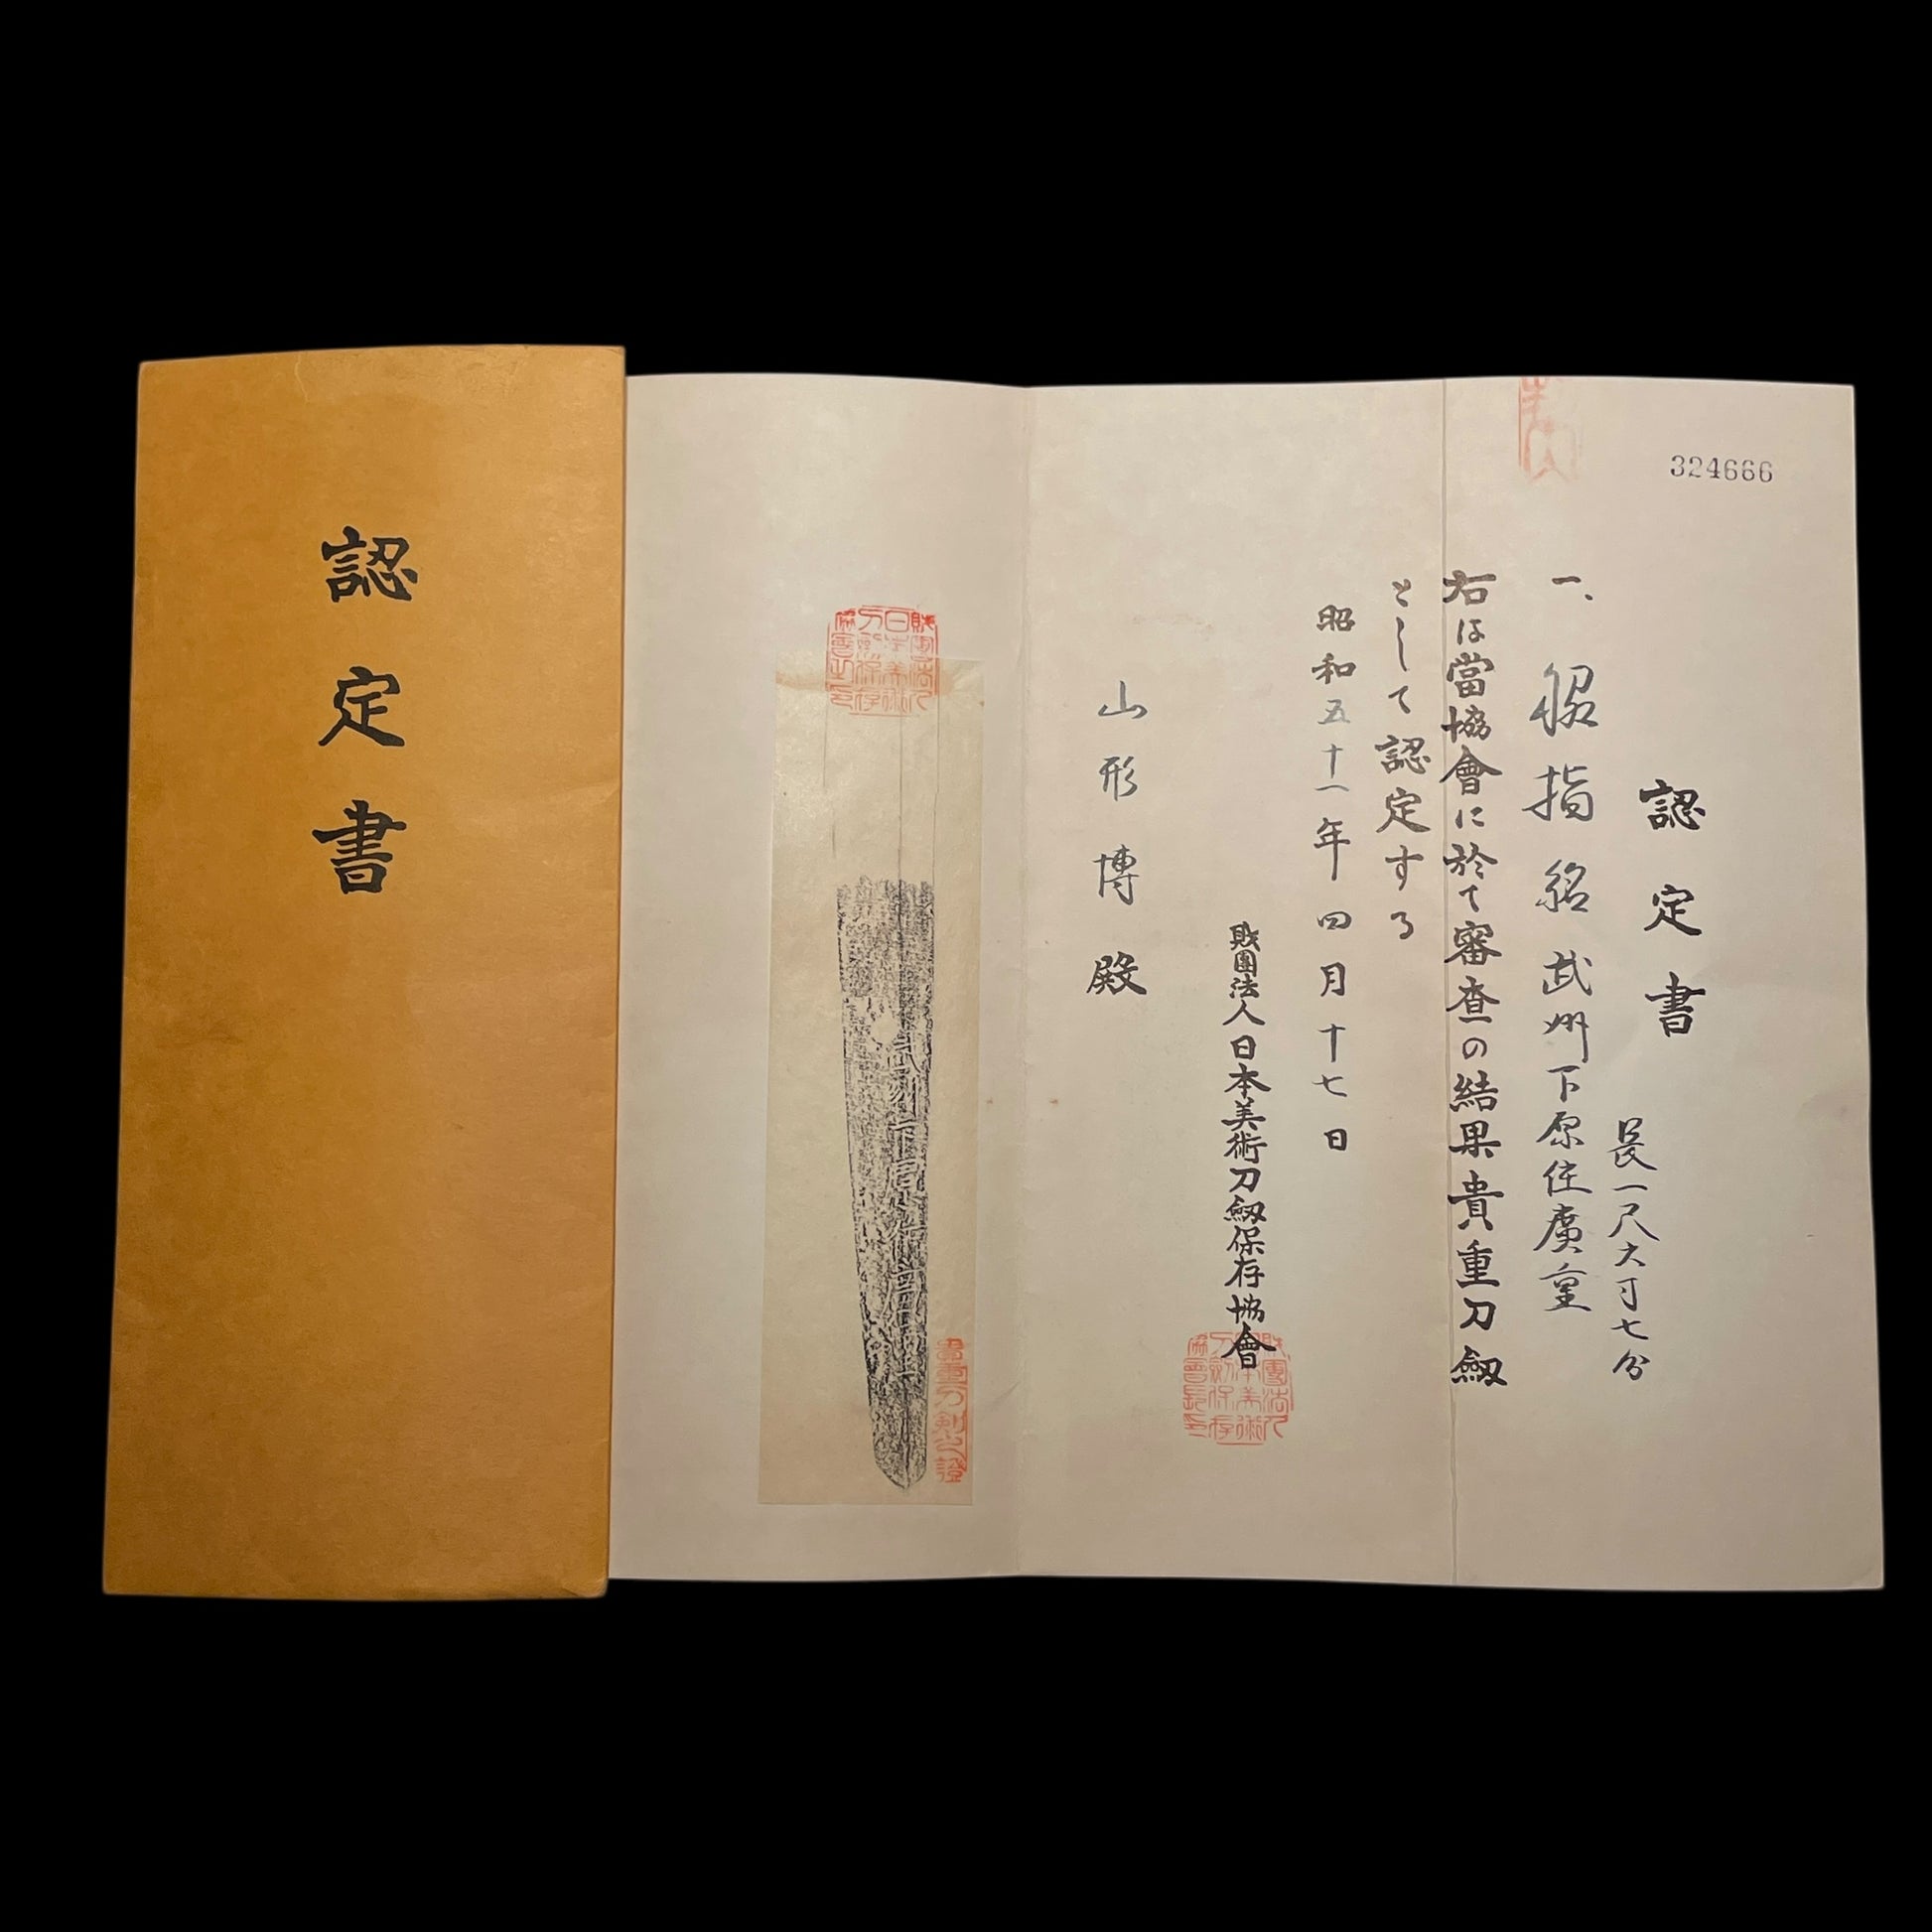 認定書
324666
認定書
長一尺六寸七分
一、脇指 銘 武州下原住廣重
右は當協會に於て審査の結果貴重刀劔
として認定する
昭和五十一年四月十七日
財團法人日本美術刀劔保存協會
山形博殿
貴重刀剣之證